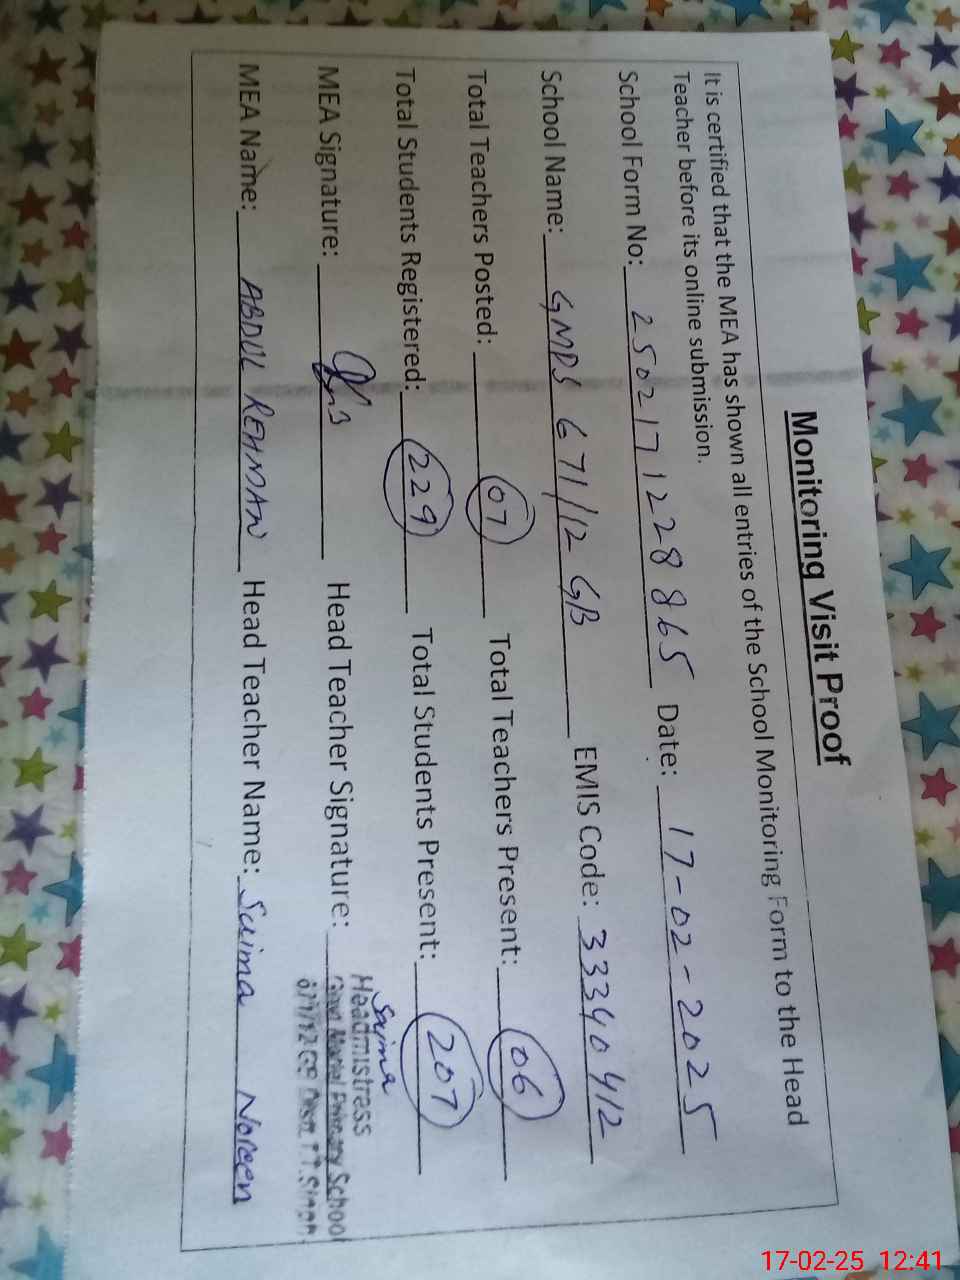 Monitoring Visit Proof
It is certified that the MEA has shown all entries of the School Monitoring Form to the Head
Teacher before its online submission.
School Form No: 2502171228865 Date: 17-02-2025
School Name: GMPS 671/12 GB EMIS Code: 33340412
Total Teachers Posted: 07 Total Teachers Present: 06
Total Students Registered: 229 Total Students Present: 207
MEA Signature: Head Teacher Signature: Saima
Headmistress
Govt Model Primary School
671/12 GB T.T.Singh
MEA Name: ABDUL REHMAN Head Teacher Name: Saima Noreen
17-02-25 12:41